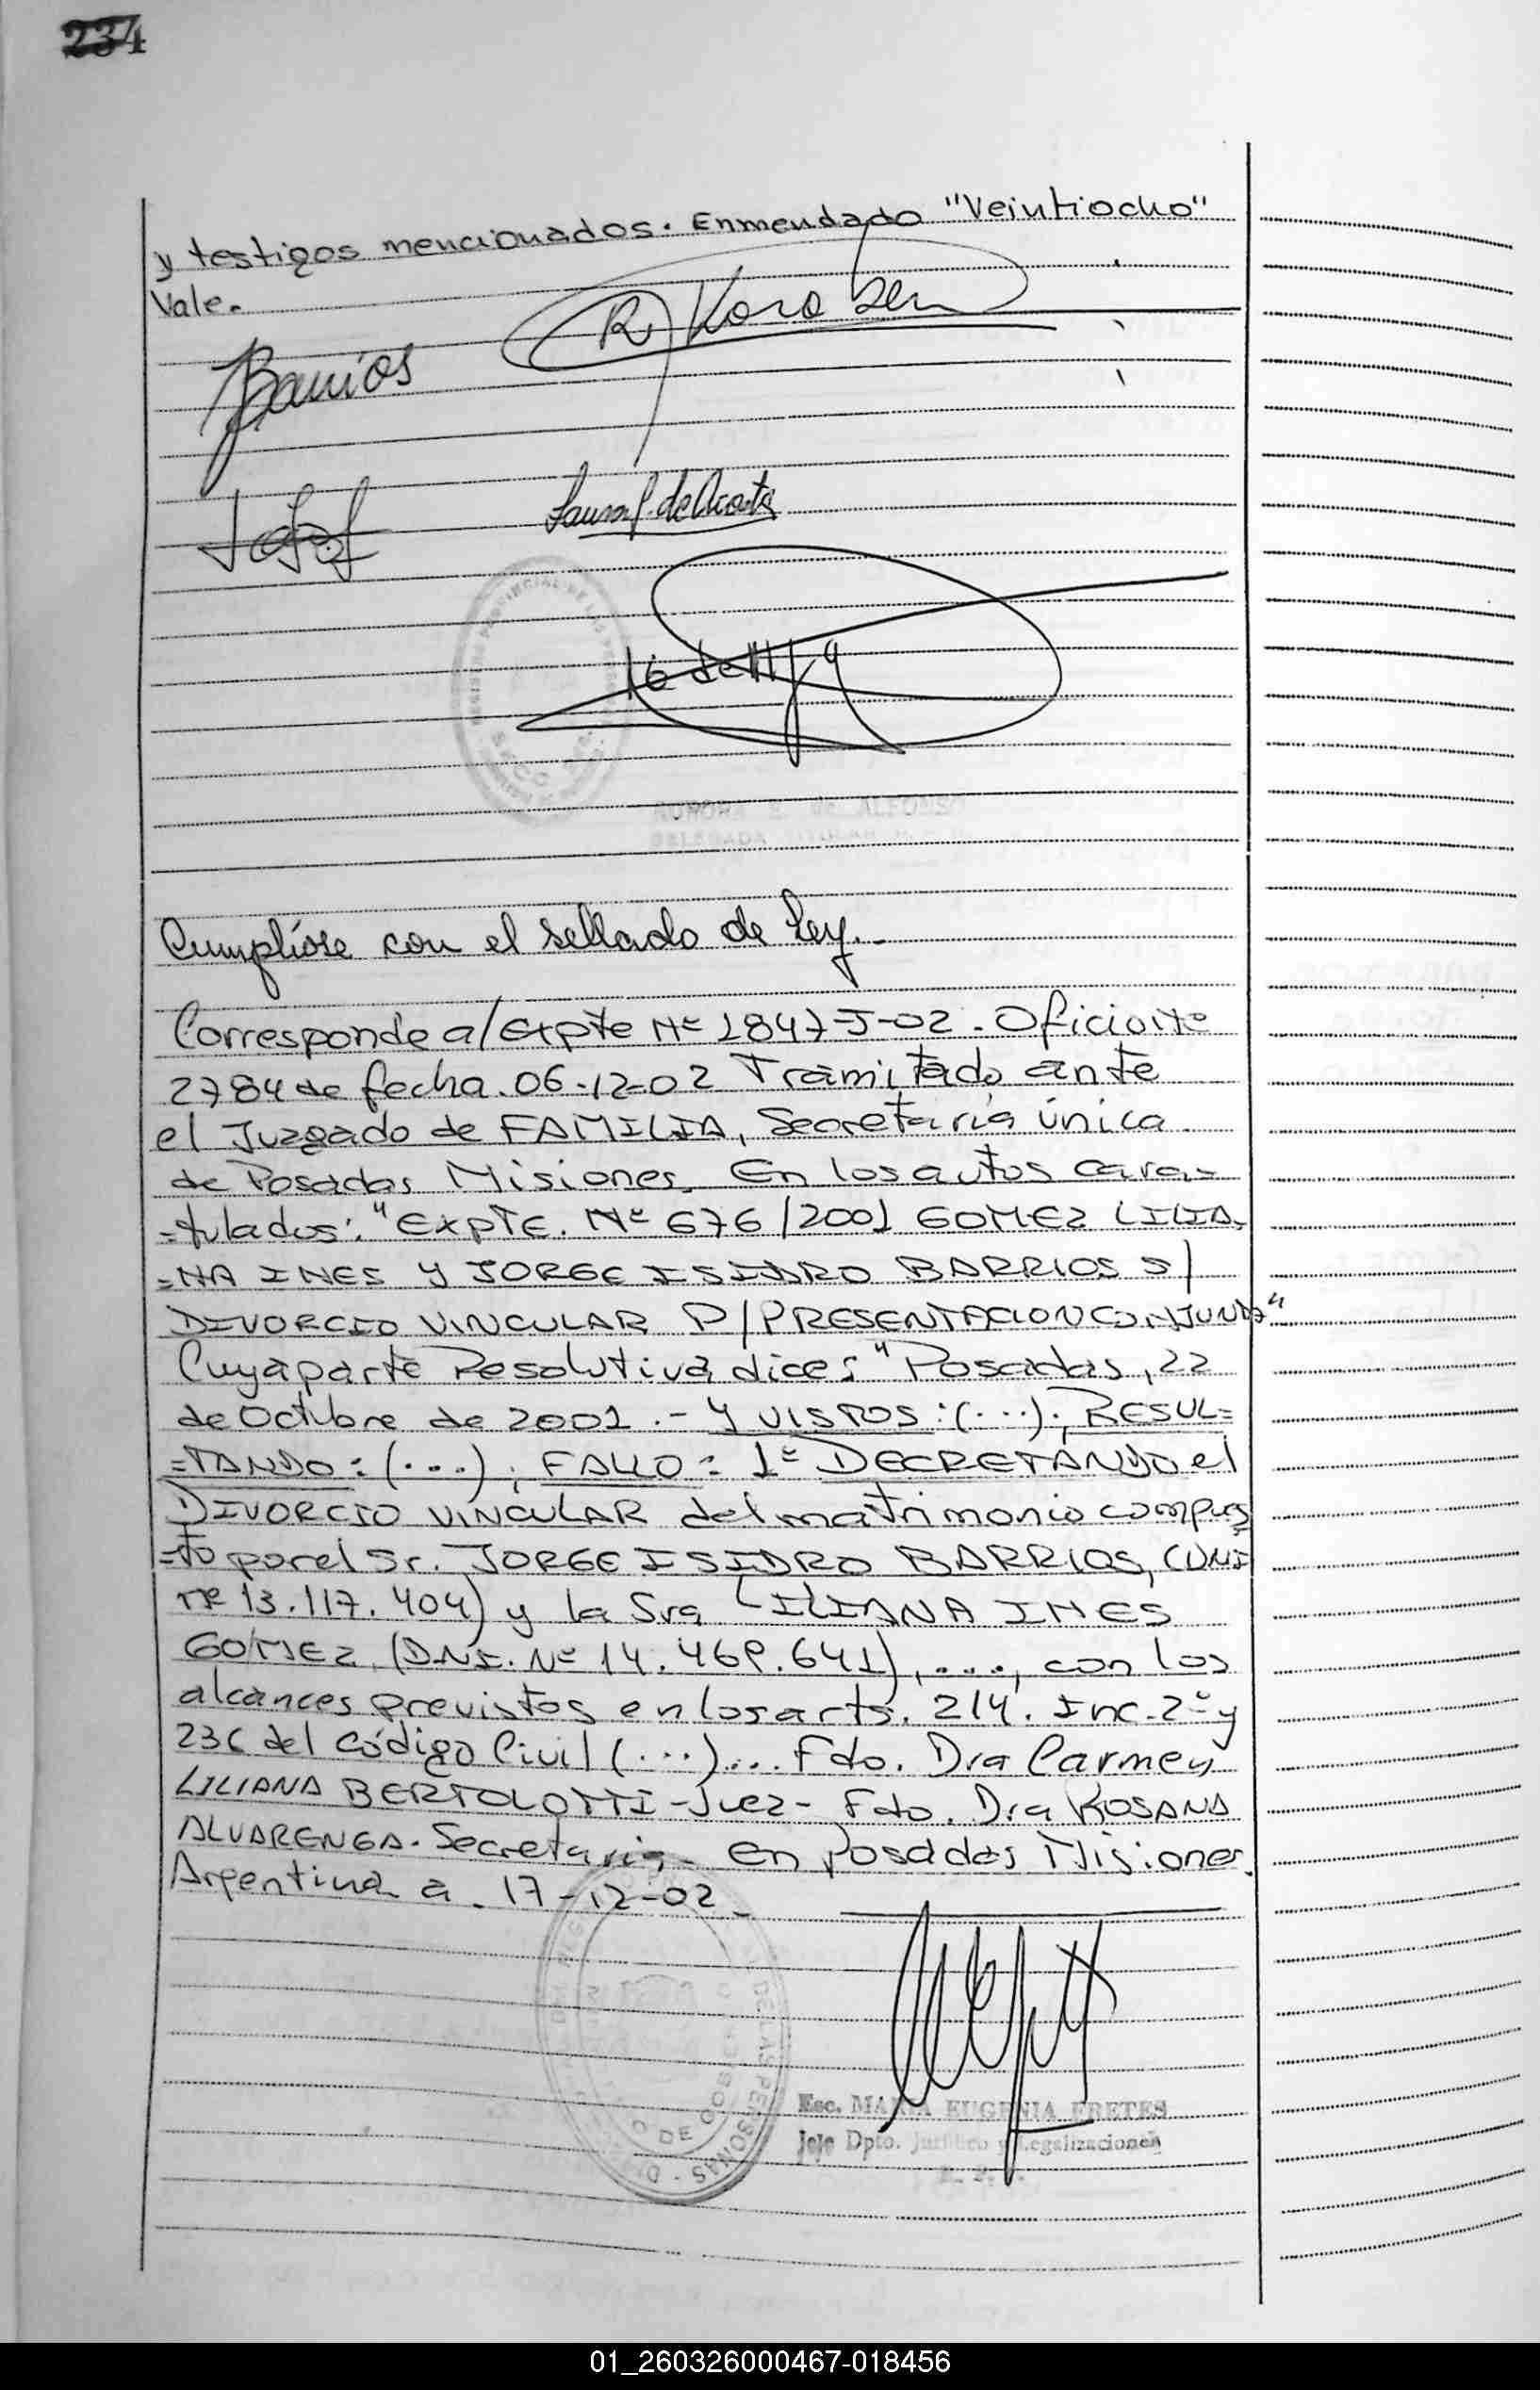 234
y testigos mencionados. Enmendado "Veintiocho"
Vale.
Barrios
Cumplióse con el sellado de Ley.-
Corresponde a/Expte Nº 2847-J-02. Oficio Nº
2784 de fecha. 06-12-02 Tramitado ante
el Juzgado de FAMILIA, Secretaría única
de Posadas, Misiones. En los autos cara=
=tulados: "EXPTE. Nº 676/2001 GOMEZ LILIA=
=NA INES Y JORGE ISIDRO BARRIOS S/
DIVORCIO VINCULAR P/PRESENTACION CONJUNTA"
Cuya parte Resolutiva dice: "Posadas, 22
de Octubre de 2001.- Y VISTOS: (...); RESUL=
=TANDO: (...); FALLO: 1º DECRETANDO el
DIVORCIO VINCULAR del matrimonio compues
=to por el Sr. JORGE ISIDRO BARRIOS, (DNI
Nº 13.117.404) y la Sra LILIANA INES
GOMEZ, (D.N.I. Nº 14.469.641), ...., con los
alcances previstos en los arts. 214. Inc. 2º y
236 del Código Civil (...).... Fdo. Dra Carmen
LILIANA BERTOLOTTI -Juez- Fdo. Dra ROSANA
ALVARENGA. Secretaria- En Posadas Misiones
Argentina a. 17-12-02-
Esc. MARIA EUGENIA FRETES
Jefe Dpto. Jurídico y Legalizaciones
01_260326000467-018456